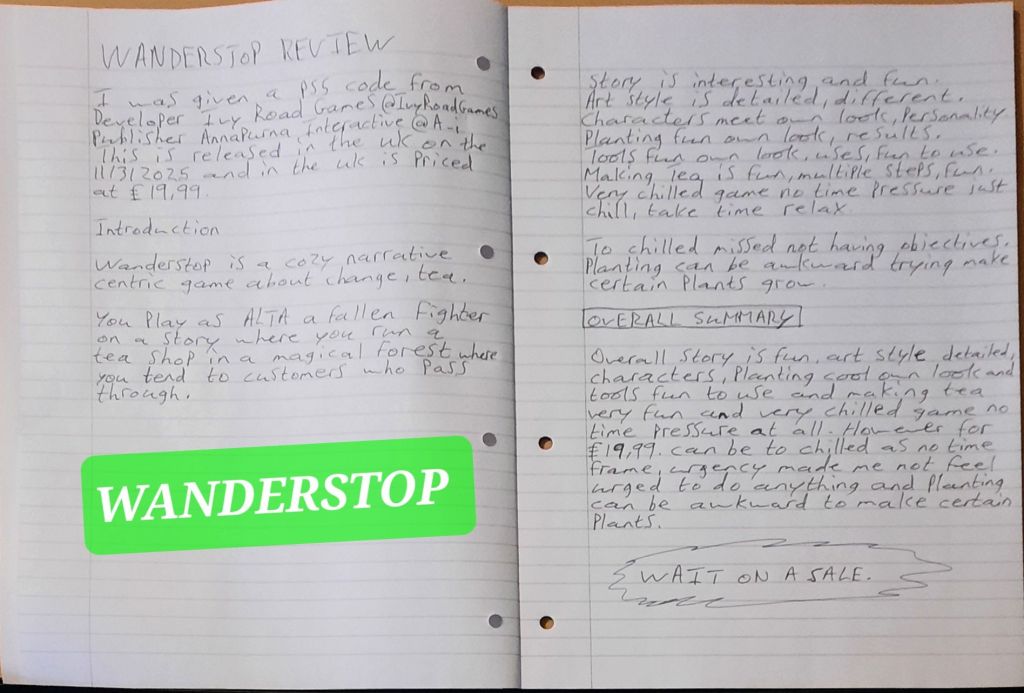 WANDERSTOP REVIEW
I was given a PS5 code from
Developer Ivy Road Games @IvyRoadGames
Publisher Annapurna Interactive @A-i
This is released in the UK on the
11/3/2025 and in the UK is Priced
at £19,99.
Introduction
Wanderstop is a cozy narrative
centric game about change, tea.
You Play as ALTA a fallen Fighter
on a story where you run a
tea shop in a magical forest where
you tend to customers who Pass
through.
WANDERSTOP
Story is interesting and fun.
Art style is detailed, different.
Characters meet own look, Personality
Planting fun own look, results.
Tools fun own look, uses, fun to use.
Making tea is fun, multiple steps, fun.
Very chilled game no time Pressure just
chill, take time relax.
To chilled missed not having objectives.
Planting can be awkward trying make
certain Plants grow.
OVERALL SUMMARY
Overall Story is fun, art style detailed,
characters, Planting cool own look and
tools fun to use and making tea
very fun and very chilled game no
time Pressure at all. However for
£19,99. can be to chilled as no time
frame, urgency made me not feel
urged to do anything and Planting
can be awkward to make certain
Plants.
WAIT ON A SALE.